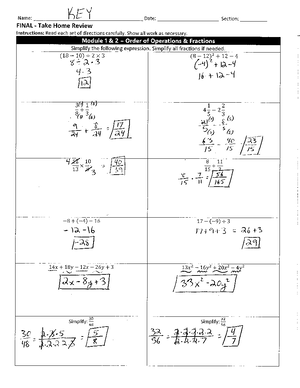 KEY
Name: Date: Section:
FINAL - Take Home Review
Instructions: Read each set of directions carefully. Show all work as necessary.
Module 1 & 2 – Order of Operations & Fractions
Simplify the following expression. Simplify all fractions if needed.
(18 − 10) ÷ 2 × 3
8 ÷ 2 · 3
4 · 3
12
(8 − 12)² + 12 − 4
(-4)² + 12 - 4
16 + 12 - 4
9/24 + 8/24 = 17/24
63/15 - 40/15 = 23/15
10/3
40/39
8/15 ÷ 11/7
8/15 · 7/11 = 56/165
−8 + (−4) − 16
-12 - 16
-28
17 − (−9) + 3
17 + 9 + 3 = 26 + 3
29
14x + 18y − 12x − 26y + 3
2x - 8y + 3
13x² − 16y² + 20x² − 4y²
33x² - 20y²
Simplify: 30/48
30/48 = 2·3·5/2·2·2·2·3 = 5/8
Simplify:
32/56 = 2·2·2·2·2/2·2·2·7 = 4/7